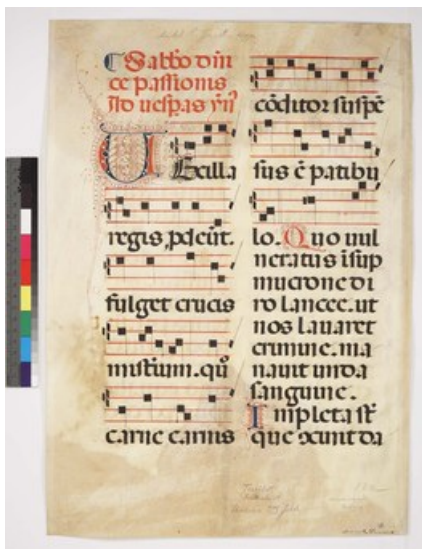 Sabbõ dñi
ce passionis
Ad uesp̃as ỹm̃
Vexilla
regis ꝓdeũt.
fulget crucis
misterium. quo
carne carnis
cõditor suspẽ
sus ẽ patibu
lo. Quo uul
neratus ĩsup
mucrone di
ro lancee. ut
nos lauaret
crimine. ma
nauit unda
sanguine.
Impleta sũt
que cõcinit da